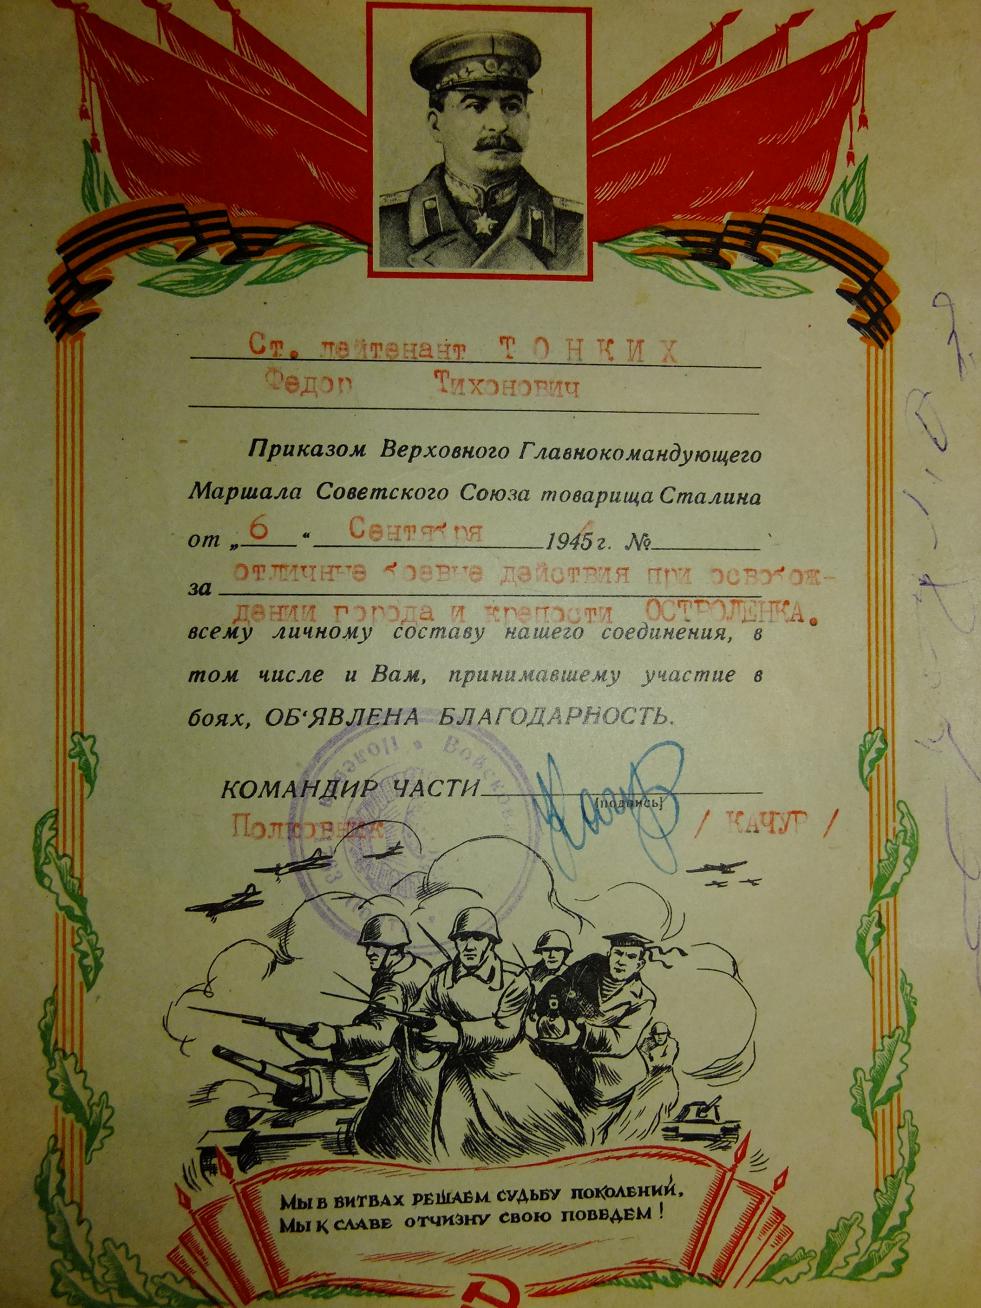 Ст. лейтенант ТОНКИХ
Федор Тихонович
Приказом Верховного Главнокомандующего
Маршала Советского Союза товарища Сталина
от „6“ Сентября 1944 г. №
за отличные боевые действия при освобож-
дении города и крепости ОСТРОЛЕНКА.
всему личному составу нашего соединения, в
том числе и Вам, принимавшему участие в
боях, ОБ‘ЯВЛЕНА БЛАГОДАРНОСТЬ.
КОМАНДИР ЧАСТИ
(подпись)
Полковник / КАЧУР /
Войсковая
Мы в битвах решаем судьбу поколений,
Мы к славе отчизну свою поведем!